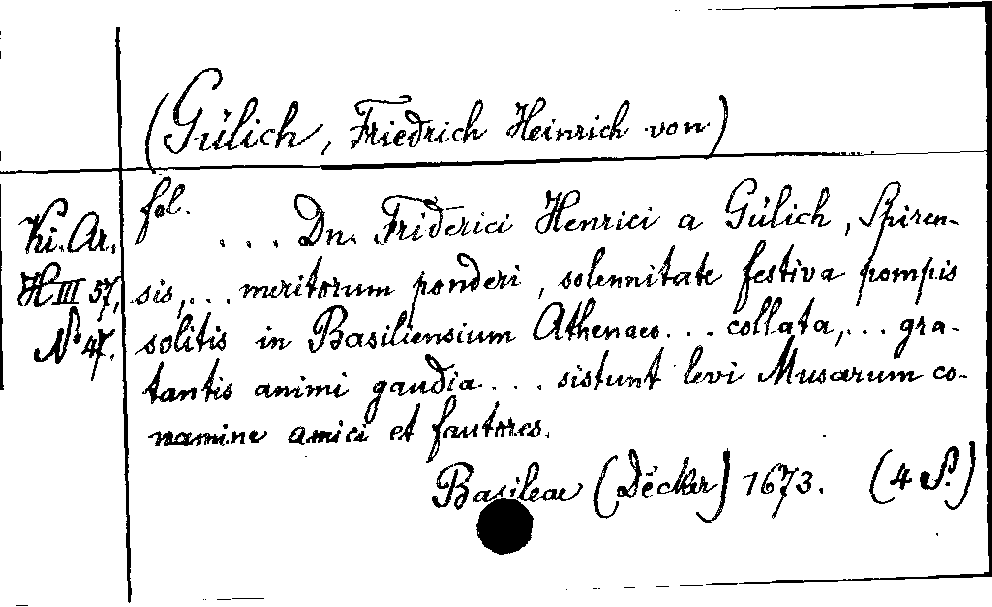 (Gülich, Friedrich Heinrich von)
fol.
Ki. Ar.
H III 57,
No 47.
... Dn. Friderici Henrici a Gülich, Spiren-
sis, ... meritorum ponderi, solennitate festiva pompis
solitis in Basiliensium Athenaeo ... collata, ... gra-
tantis animi gaudia ... sistunt levi Musarum co-
namine amici et fautores.
Basileae (Decker) 1673. (4 S.)